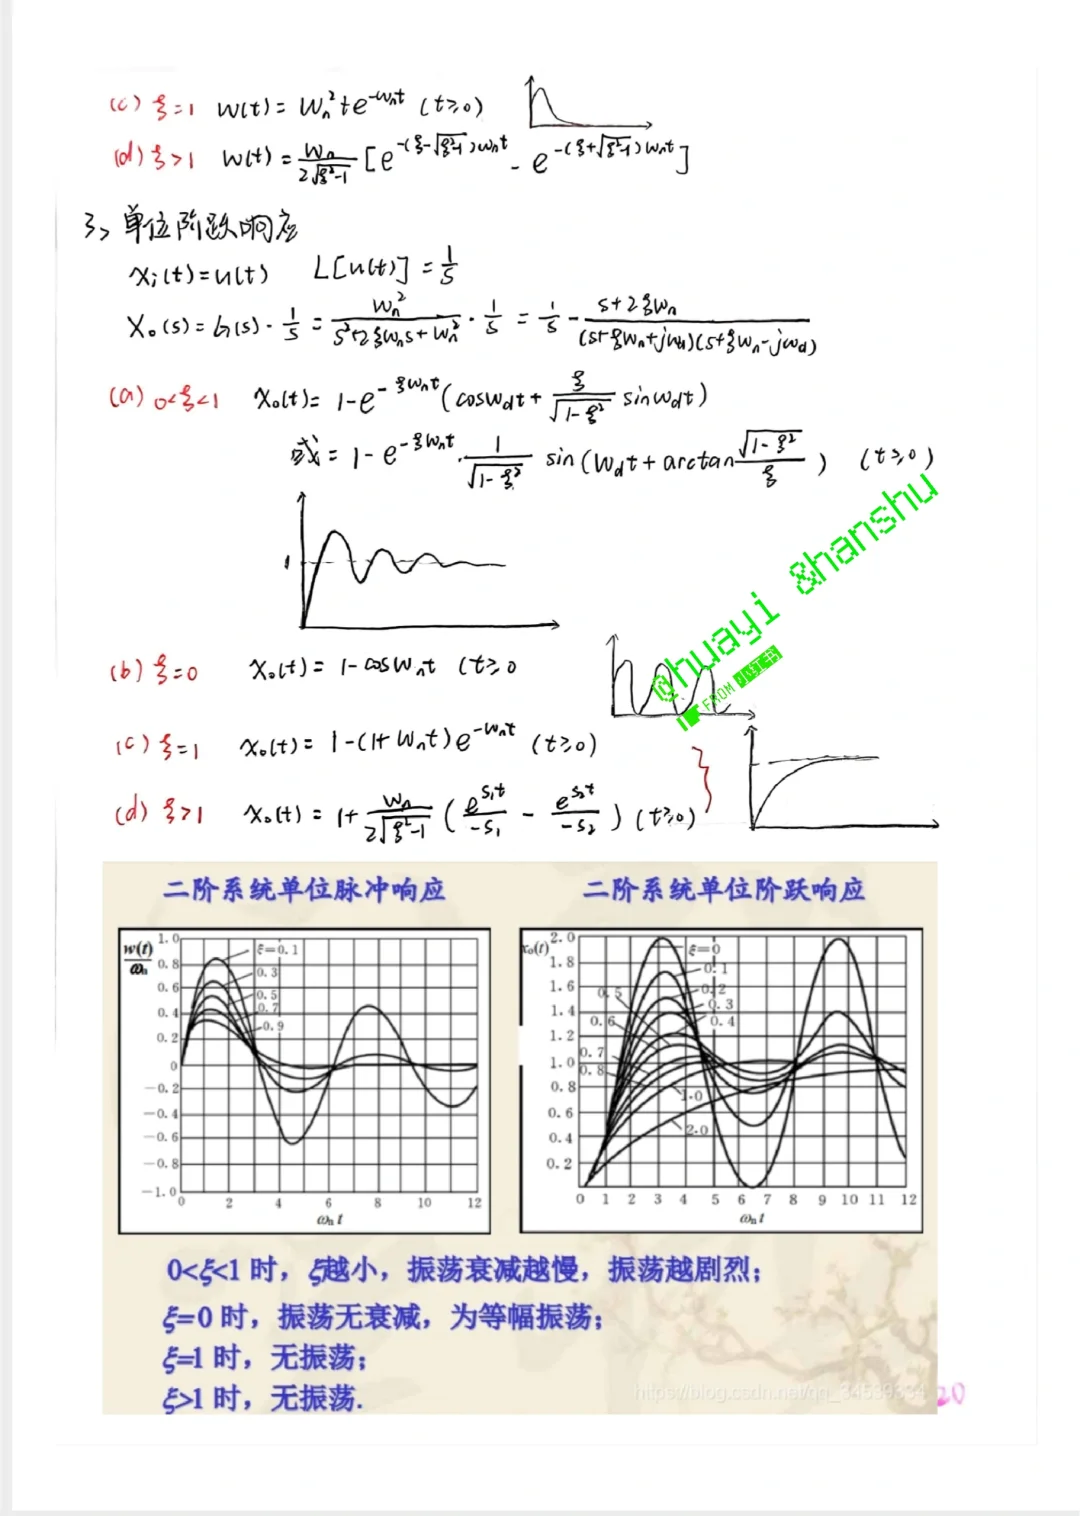 (c) ξ=1 w(t)= Wn²te^-Wnt (t≥0)
(d) ξ>1 w(t)= Wn/2√ξ²-1 [e^-(ξ-√ξ²-1)Wnt - e^-(ξ+√ξ²-1)Wnt]
3、单位阶跃响应
Xi(t)=u(t) L[u(t)]=1/S
Xo(s)=G(s)·1/S = Wn²/S²+2ξWnS+Wn² · 1/S = 1/S - S+2ξWn/(S+ξWn+jWd)(S+ξWn-jWd)
(a) 0<ξ<1 Xo(t)= 1-e^-ξWnt(cosWdt+ ξ/√1-ξ² sinWdt)
或= 1-e^-ξWnt·1/√1-ξ² sin(Wdt+arctan √1-ξ²/ξ) (t≥0)
1
(b) ξ=0 Xo(t)= 1-cosWnt (t≥0
(c) ξ=1 Xo(t)= 1-(1+Wnt)e^-Wnt (t≥0)
(d) ξ>1 Xo(t)= 1+ Wn/2√ξ²-1 (e^S₁t/-S₁ - e^S₂t/-S₂) (t≥0)
@huayi &hanshu
FROM 小红书
二阶系统单位脉冲响应
w(t)/ωn
1.0
0.8
0.6
0.4
0.2
0
-0.2
-0.4
-0.6
-0.8
-1.0
ξ=0.1
0.3
0.5
0.7
0.9
0 2 4 6 8 10 12
ωnt
二阶系统单位阶跃响应
xo(t)
2.0
1.8
1.6
1.4
1.2
1.0
0.8
0.6
0.4
0.2
ξ=0
0.1
0.2
0.3
0.4
0.5
0.6
0.7
0.8
1.0
2.0
0 1 2 3 4 5 6 7 8 9 10 11 12
ωnt
0<ξ<1 时，ξ越小，振荡衰减越慢，振荡越剧烈；
ξ=0 时，振荡无衰减，为等幅振荡；
ξ=1 时，无振荡；
ξ>1 时，无振荡.
https://blog.csdn.net/qq_34539334
20